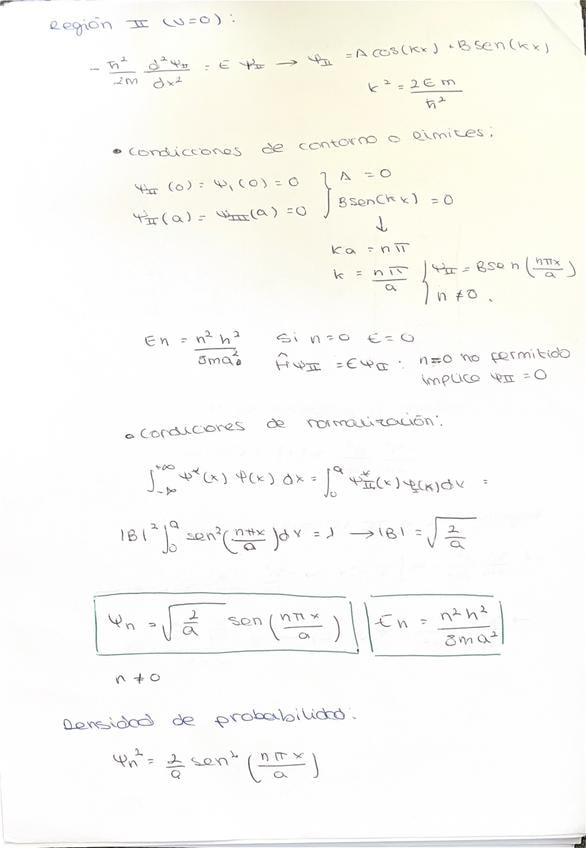 Región II (U=0):
- ħ²/2m d²Ψ_II/dx² = E Ψ_II → Ψ_II = A cos(Kx) + B sen(Kx)
k² = 2Em/ħ²
• condiciones de contorno o límites:
Ψ_II (0) = Ψ_I (0) = 0 } A = 0
Ψ_II (a) = Ψ_III (a) = 0 } B sen(kx) = 0
↓
Ka = nπ
k = nπ/a { Ψ_II = B sen (nπx/a)
n ≠ 0.
En = n² h²/8ma² Si n=0 E=0
Ĥ Ψ_II = E Ψ_II : n=0 no permitido
implica Ψ_II = 0
• condiciones de normalización:
∫_{-∞}^{+∞} Ψ*(x) Ψ(x) dx = ∫_0^a Ψ*_II(x) Ψ_II(x) dx =
|B|² ∫_0^a sen² (nπx/a) dx = 1 → |B| = √(2/a)
Ψn = √(2/a) sen (nπx/a) En = n²h²/8ma²
n ≠ 0
Densidad de probabilidad:
Ψn² = 2/a sen² (nπx/a)